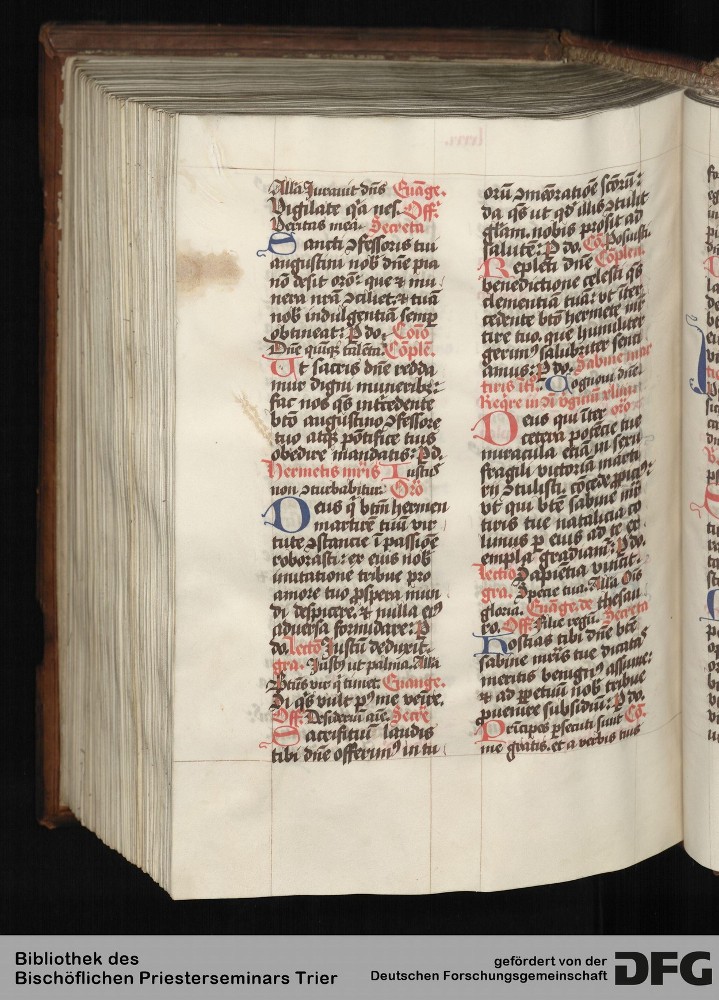 Alla Iurauit dns Euãge.
Vigilate qa nes. Off.
Veritas mea. Secreta
Sancti ꝯfessoris tui
augustini nob dne pia
nõ desit orõ: que ⁊ mu
nera nrã ꝯciliet, ⁊ tuã
nob indulgentiã semp
obtineat: P do. Coiõ
Dne quinqꝫ talenta. Cõple.
Ut sacris dne redda
mur digni muneribꝫ:
fac nos qs intcedente
btõ augustino ꝯfessore
tuo atqꝫ põtifice tuis
obedire mandatis: P d.
Hermetis mris Iustus
non ꝯturbabitur. Orõ
Deus q btm hermen
martirẽ tuũ vir
tute ꝯstantie ĩ passiõe
roborasti: ex eius nob
imitatione tribue pro
amore tuo pspera mun
di despicere, ⁊ nulla eiꝰ
aduersa formidare: P
do. lectõ Iustũ deduxit.
gra. Iustꝰ ut palma. Alla
Btũs vir q timet. Euange.
Si qs vult pꝰ me venire.
Off. Desideriũ aie. Secre
Sacrifitiũ laudis
tibi dne offerimꝰ in tu
orũ ꝯmẽoratiõe scõrũ:
da qs ut qd illis ꝯtulit
glam, nobis prosit ad
salutẽ: P do. Cõ. Posuisti.
Repleti dne Cõplen.
benedictione celesti qs
clementiã tuã: vt ĩter
cedente btõ hermete mr
tire tuo, que humiliter
gerimꝰ salubriter senti
amus: P do. Sabine mar
tiris ĩt. Cognoui dne.
Reqre in
Deus qui ĩter orõ.
cetera potẽtie tue
miracula etiã in sexu
fragili victoriã marti
rii ꝯtulisti: ꝯcede ppiciꝰ:
vt qui btẽ sabine mr
tiris tue natalicia co
limus p eius ad te ex
empla gradiamꝰ: P do.
lectio Sapientia vincit.
gra. Specie tua. Alla Ois
gloria. Euãge. de thesau
ro. Off. Filie regũ. Secreta
Hostias tibi dne btẽ
sabine mris tue dicatas
meritis benignꝰ assume:
⁊ ad ppetuũ nob tribue
puenire subsidiũ: P do.
Principes psecuti sunt Cõ.
me gratis. et a verbis tuis
Bibliothek des
Bischöflichen Priesterseminars Trier
gefördert von der
Deutschen Forschungsgemeinschaft
DFG